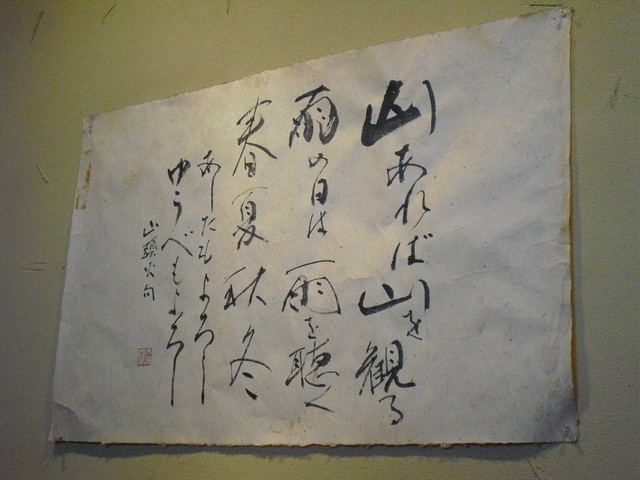 山あれば山を観る
雨の日は雨を聴く
春夏秋冬
あしたもよろし
ゆうべもよろし
山頭火句